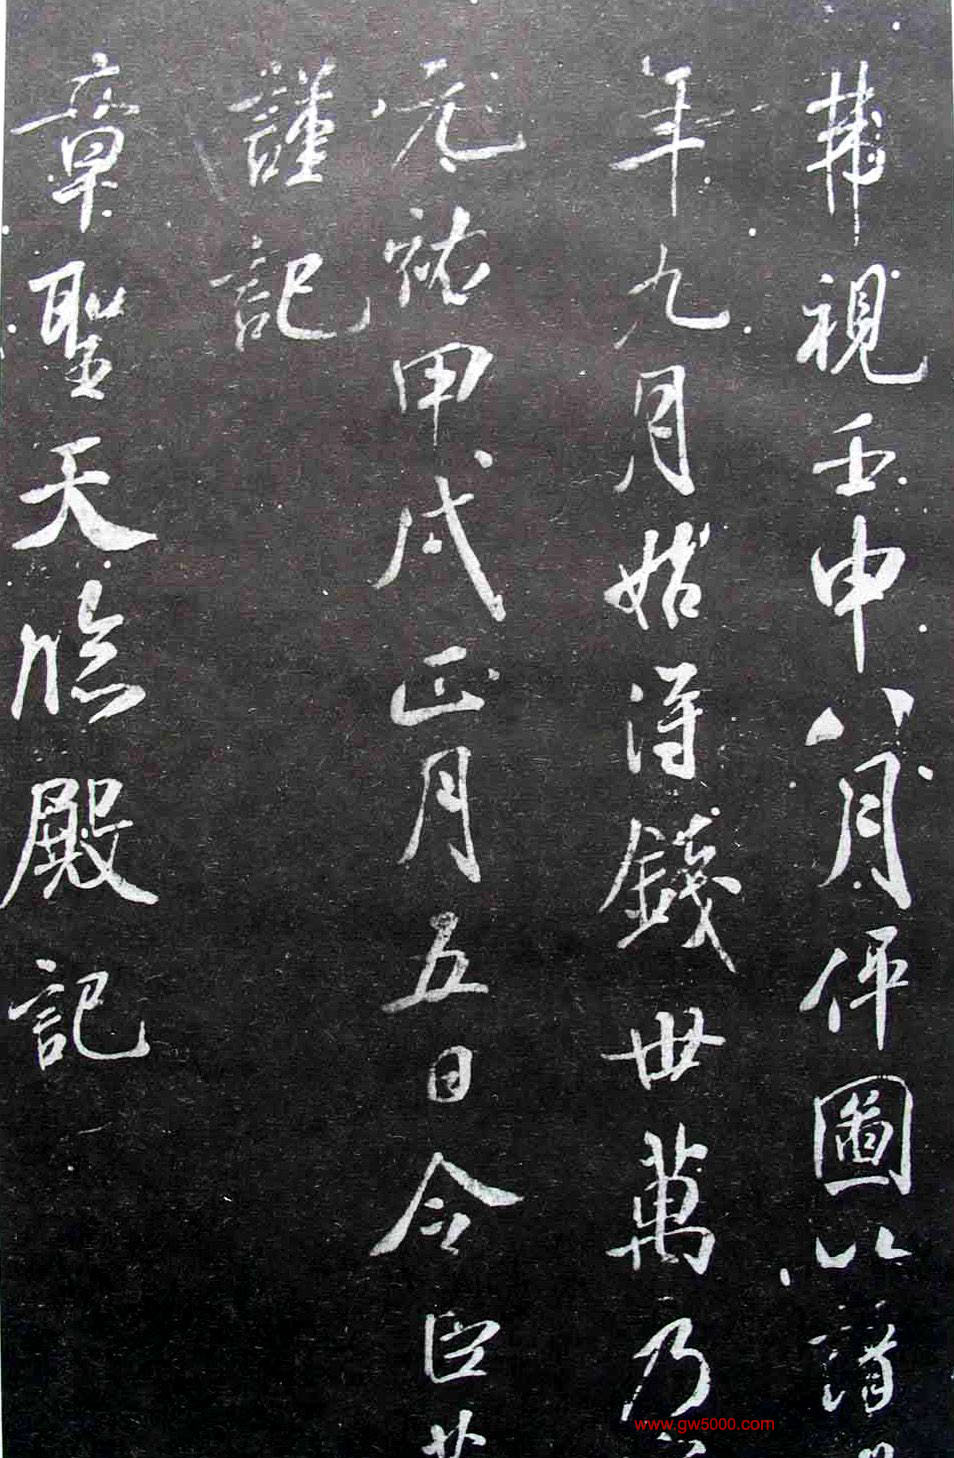 視壬申八月伻圖以請
年九月始得錢丗萬乃
元祐甲戌正月五日令臣
謹記
章聖天臨殿記
www.gw5000.com